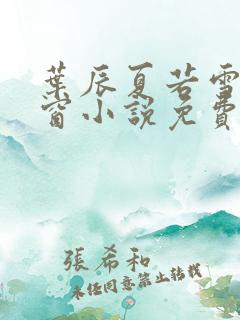 葉辰夏若雪
窗小說免費
張希和
未任同意禁止轉載